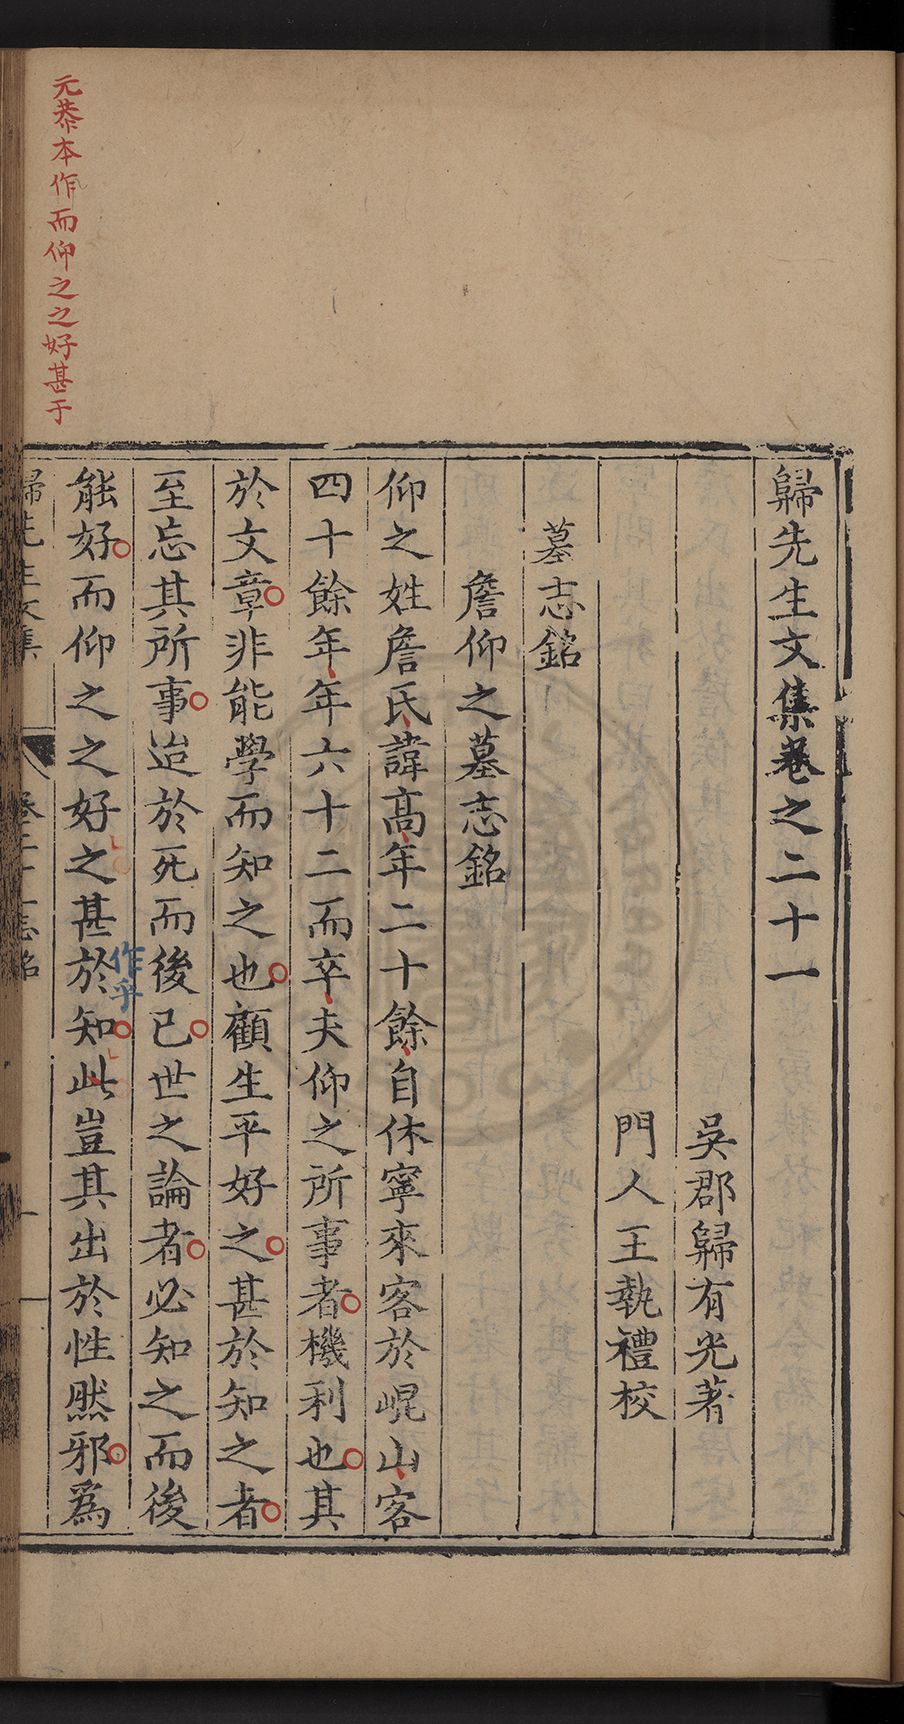 歸先生文集卷之二十一
吳郡歸有光著
門人王執禮校
墓志銘
詹仰之墓志銘
仰之姓詹氏諱高年二十餘自休寧來客於崐山客
四十餘年年六十二而卒夫仰之所事者機利也其
於文章非能學而知之也顧生平好之甚於知之者
至忘其所事迨於死而後已世之論者必知之而後
能好而仰之之好之甚於知此豈其出於性然邪爲
作乎
元恭本作而仰之之好甚于
歸先生文集